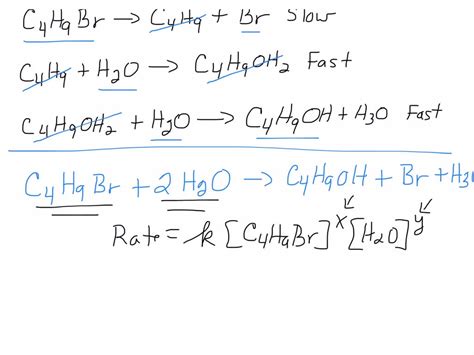 C4H9Br → C4H9 + Br Slow
C4H9 + H2O → C4H9OH2 Fast
C4H9OH2 + H2O → C4H9OH + H3O Fast
C4H9Br + 2 H2O → C4H9OH + Br + H3
Rate = k [C4H9Br]^x [H2O]^y